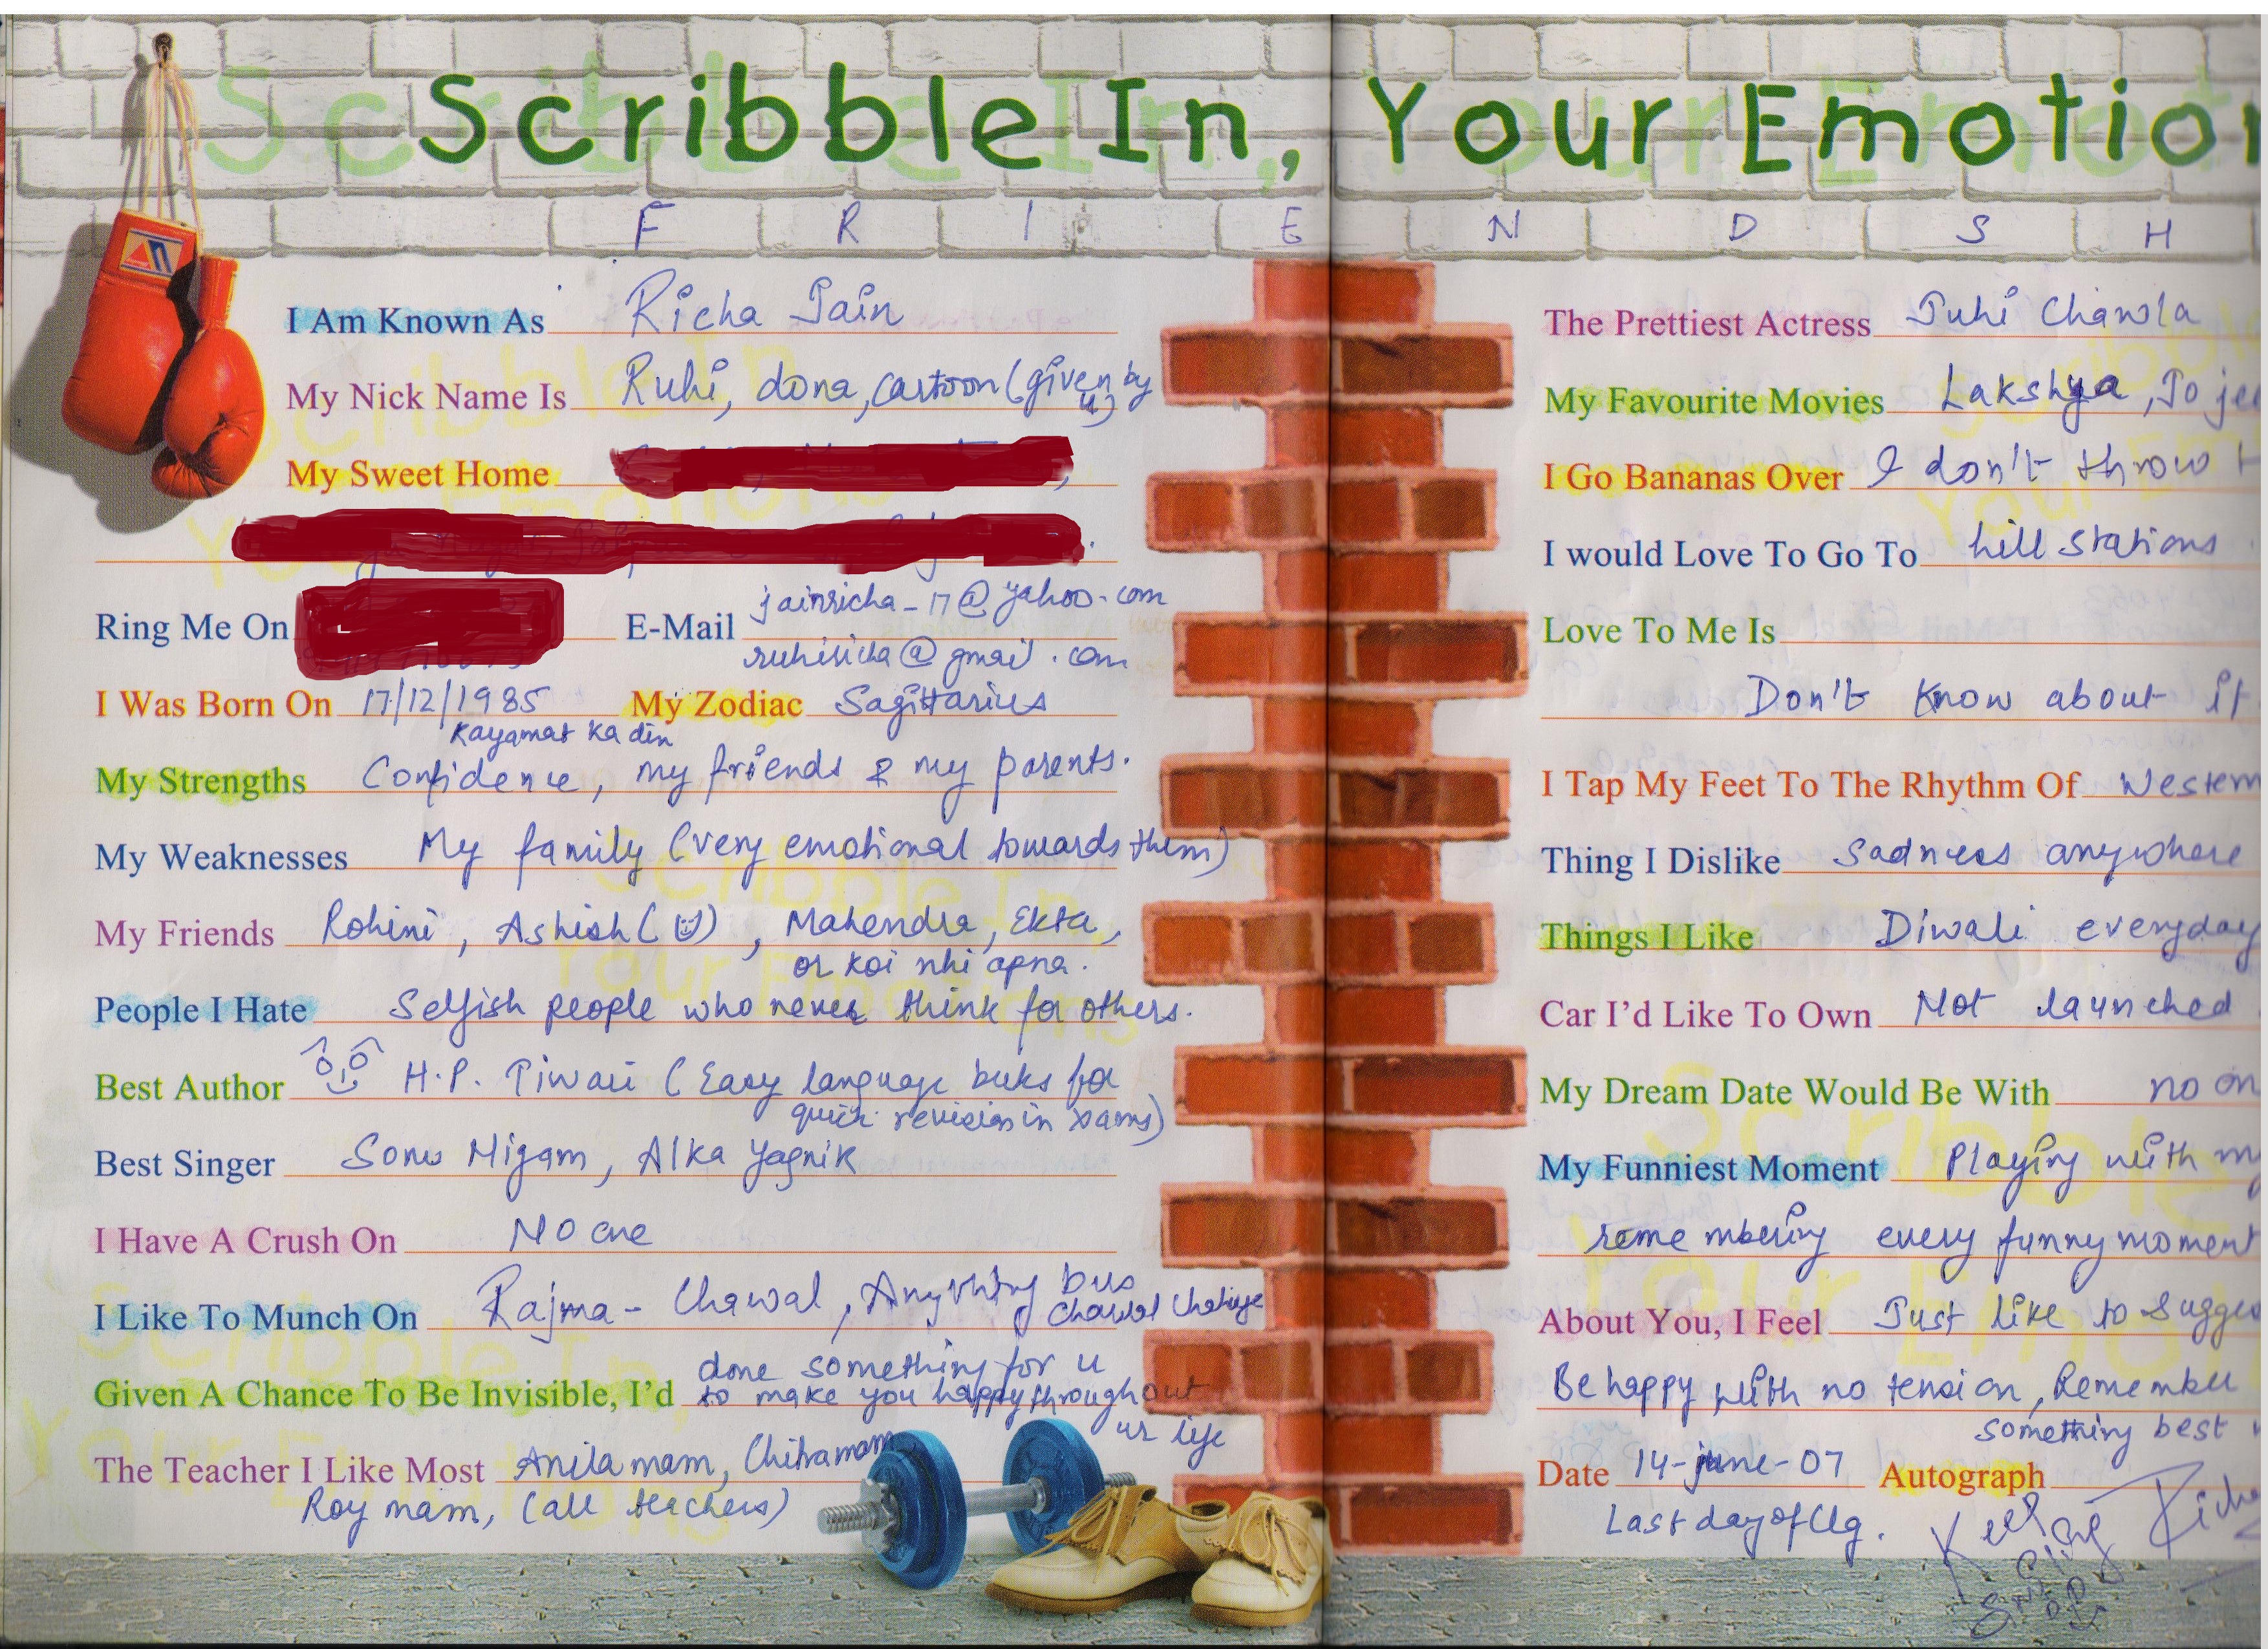 Scribble In, Your Emotion
F R I E N D S H
I Am Known As Richa Jain
My Nick Name Is Ruhi, dona, cartoon (given by u)
My Sweet Home
Ring Me On
E-Mail jainricha_17@yahoo.com
ruhiricha@gmail.com
I Was Born On 17/12/1985 My Zodiac Sagittarius
Kayamat ka din
My Strengths Confidence, my friends & my parents.
My Weaknesses My family (very emotional towards them)
My Friends Rohini, Ashish (U), Mahendra, Ekta,
or koi nhi apna.
People I Hate Selfish people who never think for others.
Best Author H.P. Tiwari (Easy language buks for
quick revision in xams)
Best Singer Sonu Nigam, Alka Yagnik
I Have A Crush On No one
I Like To Munch On Rajma - Chawal, Anything bus
Chawal Chahiye
Given A Chance To Be Invisible, I'd done something for u
to make you happy throughout
ur life
The Teacher I Like Most Anila mam, Chitra mam
Roy mam, (all teachers)
The Prettiest Actress Juhi Chawla
My Favourite Movies Lakshya, Jo jee
I Go Bananas Over I don't throw
I would Love To Go To hill stations
Love To Me Is
Don't Know about it
I Tap My Feet To The Rhythm Of Western
Thing I Dislike Sadness anywhere
Things I Like Diwali everyday
Car I'd Like To Own Not launched
My Dream Date Would Be With no on
My Funniest Moment Playing with my
remembering every funny moment
About You, I Feel Just like to sugges
Be happy with no tension, Remember
something best
Date 14-june-07 Autograph
Last day of Clg.
Keep
Richa